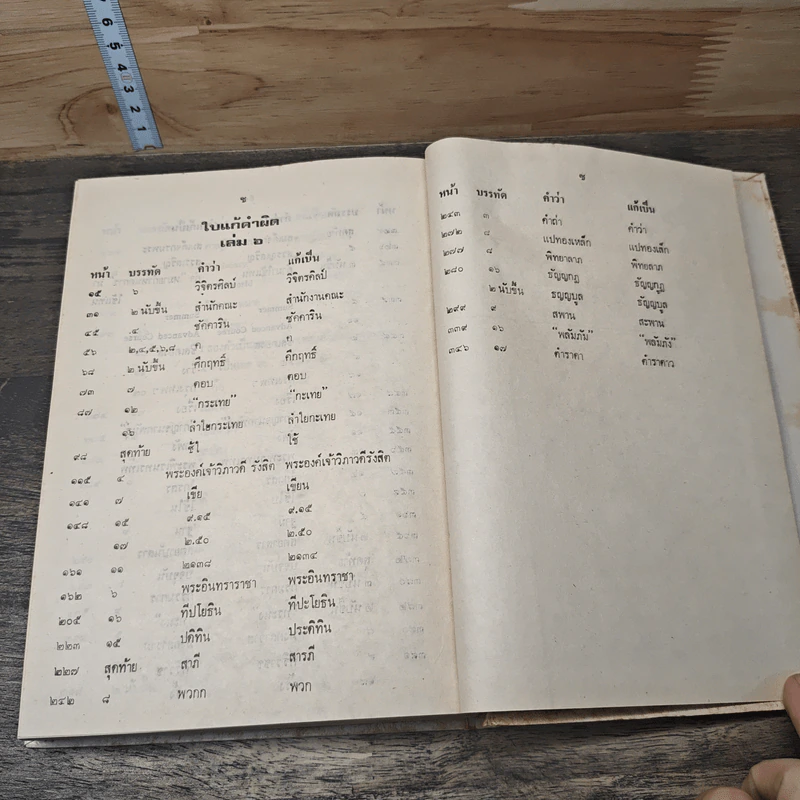 7 6 5 4 3 2 1
ซ
ใบแก้คำผิด
เล่ม ๒
หน้า บรรทัด คำว่า แก้เป็น
๑๕ ๖ วิจิตรศิลป์ วิจิตรศิลป์
๓๑ ๒ นับขึ้น สำนักคณะ สำนักงานคณะ
๔๕ ๔ ซัคคาริน ซัคคาริน
๕๖ ๒,๔,๕,๖,๘ ค ค
๖๘ ๒ นับขึ้น คึกฤทธิ์ คึกฤทธิ์
๗๓ ๗ คอบ ตอบ
๘๗ ๑๒ "กระเทย" "กะเทย"
๑๖ ลำไยกระเทย ลำไยกะเทย
๙๘ สุดท้าย ชัใ ใช้
๑๑๕ ๔ พระองค์เจ้าวิภาวดี รังสิต พระองค์เจ้าวิภาวดีรังสิต
๑๔๑ ๗ เขีย เขียน
๑๔๘ ๑๕ ๙.๑๕ ๙.๑๕
๑๗ ๒.๕๐ ๒.๕๐
๑๖๑ ๑๑ ๒๑๓๘ ๒๑๓๔
๑๖๒ ๖ พระอินทราราชา พระอินทราชา
๒๐๕ ๑๖ ทีปโยธิน ทีปะโยธิน
๒๒๓ ๑๕ ปดิทิน ประดิทิน
๒๒๗ สุดท้าย สาภี สารภี
๒๔๒ ๘ พวกก พวก
ซ
หน้า บรรทัด คำว่า แก้เป็น
๒๔๓ ๓ คำถ่า คำว่า
๒๗๒ ๘ แปทองเหล็ก แปทองเล็ก
๒๗๗ ๘ พิทยาลาภ พิทยลาภ
๒๘๐ ๑๖ ธัญญกฎ ธัญญกูฎ
๒ นับขึ้น ธญญบูล ธัญญบูล
๒๙๙ ๙ สพาน สะพาน
๓๓๙ ๑๖ "พลัมภัม" "พลัมภัง"
๓๔๖ ๑๗ ดำราคา ดำราดาว